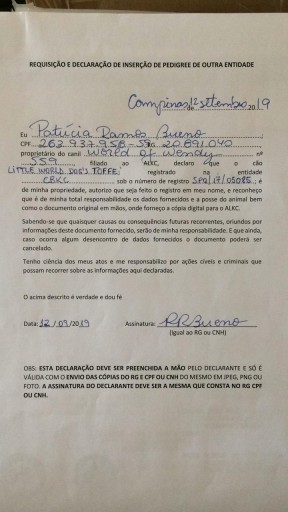 REQUISIÇÃO E DECLARAÇÃO DE INSERÇÃO DE PEDIGREE DE OUTRA ENTIDADE
Campinas, 12 de setembro, 2019
Eu Patrícia Ramos Bueno
CPF
proprietário do canil World of Wendy nº
559 filiado ao ALKC, declaro que o cão
LITTLE WORLD DOG'S TOFFE registrado na entidade
CBKC sob o número de registro ; é
de minha propriedade, autorizo que seja feito o registro em meu nome, e reconheço
que é de minha total responsabilidade os dados fornecidos e a posse do animal bem
como o documento original em mãos, onde forneço a cópia digital para o ALKC.
Sabendo-se que quaisquer causas ou consequências futuras recorrentes, oriundos por
informações deste documento fornecido, serão de minha responsabilidade. E que ainda,
caso ocorra algum desencontro de dados fornecidos o documento poderá ser
cancelado.
Tenho ciência dos meus atos e me responsabilizo por ações cíveis e criminais que
possam recorrer sobre as informações aqui declaradas.
O acima descrito é verdade e dou fé
Data: 12/09/2019 Assinatura: PRBueno
(Igual ao RG ou CNH)
OBS: ESTA DECLARAÇÃO DEVE SER PREENCHIDA A MÃO PELO DECLARANTE E SÓ É
VÁLIDA COM O ENVIO DAS CÓPIAS DO RG E CPF OU CNH DO MESMO EM JPEG, PNG OU
FOTO. A ASSINATURA DO DECLARANTE DEVE SER A MESMA QUE CONSTA NO RG CPF
OU CNH.